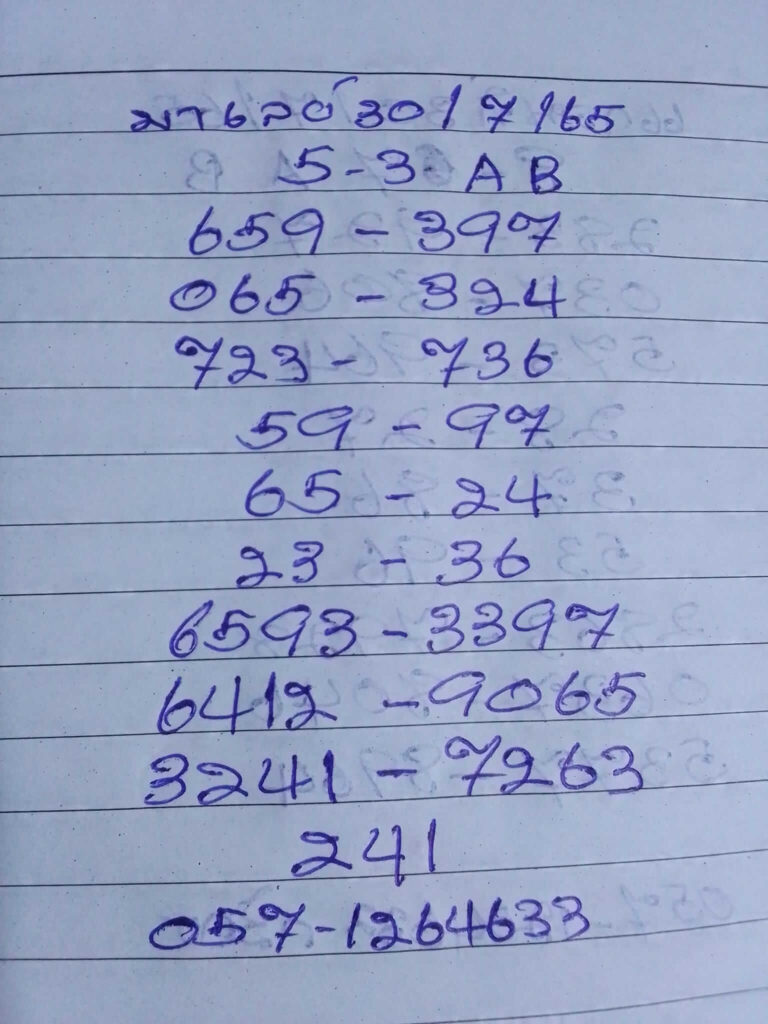 มาเลย์ 30/7/65
5-3-AB
659-397
065-324
723-736
59-97
65-24
23-36
6593-3397
6412-9065
3241-7263
241
057-1264633